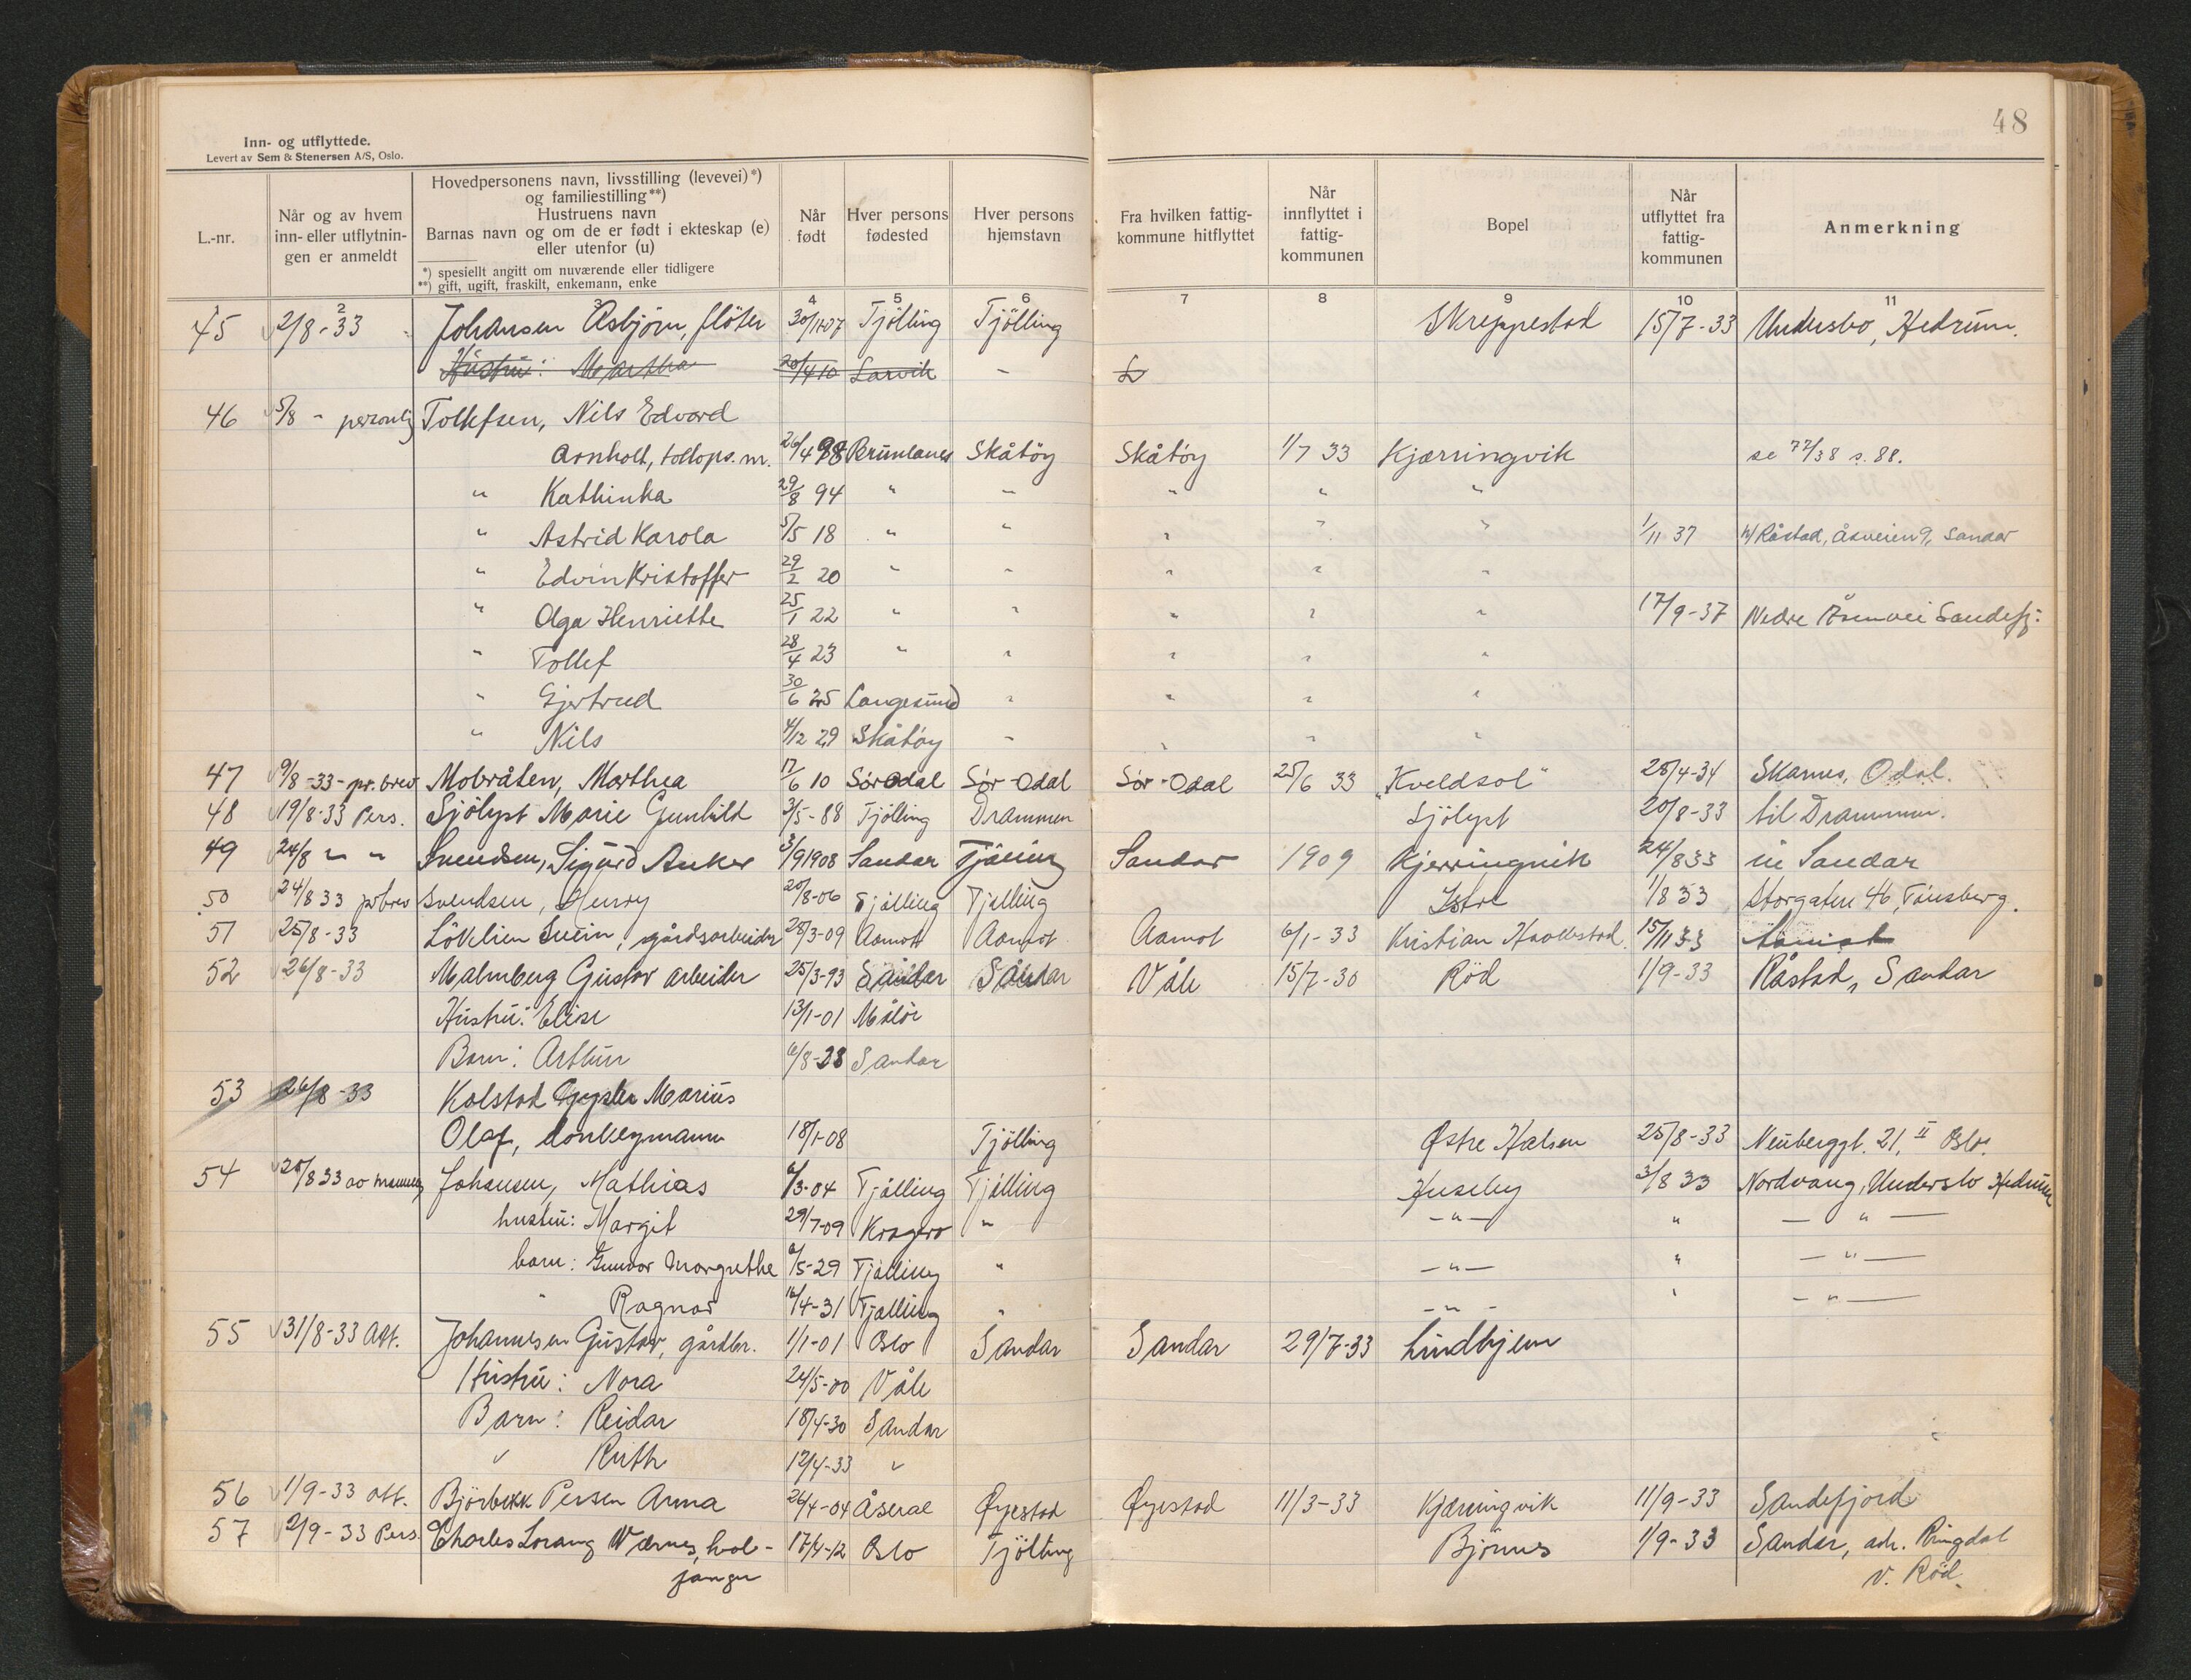 48
Inn- og utflyttede.
Levert av Sem & Stenersen A/S, Oslo.
L.-nr.
Når og av hvem inn- eller utflytnin-gen er anmeldt
Hovedpersonens navn, livsstilling (levevei)*)
og familiestilling**)
Hustruens navn
Barnas navn og om de er født i ekteskap (e)
eller utenfor (u)
*) spesiellt angitt om nuværende eller tidligere
**) gift, ugift, fraskilt, enkemann, enke
Når født
Hver persons fødested
Hver persons hjemstavn
Fra hvilken fattig-kommune hitflyttet
Når innflyttet i fattig-kommunen
Bopel
Når utflyttet fra fattig-kommunen
Anmerkning
2 3 4 5 6 7 8 9 10 11
45 2/8-33 Johansen Asbjörn, flöter 30/11-07 Tjölling Tjölling Skreppestad 15/7-33 Undersbo, Hedrum.
Hustru: Martha 20/4 10 Larvik - L
46 5/8 - personlig Tollefsen, Nils Edvard
Arnholt, tollops. m. 26/4 98 Brunlanes Skåtöy Skåtöy 1/7 33 Kjærringvik se 77/38 s. 88.
" Kathinka 29/8 94 " " " " "
" Astrid Karola 5/5 18 " " " " " 1/11 37 Råstad, Åsveien 9, Sandar
" Edvin Kristoffer 29/2 20 " " " " "
" Olga Henriette 25/1 22 " " " " " 17/9-37 Nedre Åsenvei Sandefj:
" Tollef 28/4 23 " " " " "
" Gjertrud 30/6 25 Langesund " " " "
" Nils 4/12 29 Skåtöy " " " "
47 9/8-33- pr. brev Mobråten, Marthea 17/6 10 Sör Odal Sör-Odal Sör-Odal 25/6 33 "Kveldsol" 28/4-34 Skarnes, Odal.
48 19/8-33 Pers. Sjölyst Marie Gunhild 3/5-88 Tjölling Drammen Sjölyst 20/8-33 til Drammen.
49 24/8 " " Svendsen, Sigurd Anker 3/9 1908 Sandar Tjölling Sandar 1909 Kjerringvik 24/8 33 Sandar
50 24/8 33 pr brev Svendsen, Henry 20/8-06 Tjölling Tjölling Istre 1/8 33 Storgaten 46, Tönsberg.
51 25/8-33 Lökelien Svein, gårdsarbeider 28/3-09 Aamot Aamot Aamot 6/1-33 Kristian Haakestad. 15/11 33
52 26/8-33 Malmberg Gustav arbeider 25/3-93 Sandar Sandar Våle 15/7-30 Röd 1/9-33 Råstad, Sandar
Hustru: Elise 13/1-01 Målöi
Barn: Arthur 6/8-28 Sandar
53 26/8-33 Kolstad Marius
Olaf, donkeymann 18/1-08 Tjölling Østre Halsen 25/8-33 Neuberggt. 21, II Oslo.
54 28/8 33 Johansen, Mathias 6/3-04 Tjölling Tjölling Huseby 3/8 33 Nordvang, Undersbo Hedrum
hustru: Margit 29/7-09 Kragerö " -"- " -"-
barn: Gunvor Margrethe 6/5-29 Tjölling " -"- " -"-
" Ragnar 16/4-31 Tjölling " -"- " -"-
55 31/8-33 Att. Johannesen Gustav, gårdbr. 1/1-01 Oslo Sandar Sandar 29/7-33 Lindhjem
Hustru: Nora 24/5-00 Våle
Barn: Reidar 18/4-30 Sandar
" Ruth 12/4-33 "
56 1/9-33 att. Björbekk Persen Anna 26/4-04 Åseral Øyestad Øyestad 11/3-33 Kjærringvik 11/9-33 Sandefjord
57 2/9-33 Pers. Charles Lorang Wærnes, hval- 17/4-12 Oslo Tjölling Björnes 1/9-33 Sandar, adr. Ringdal
fanger v. Röd.